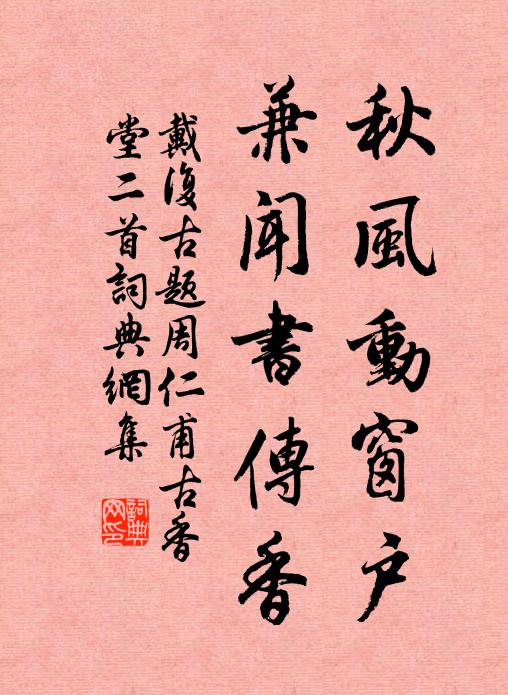 秋風動窗戶
兼聞書傳香
戴復古題周仁甫古香
堂二首詞典網集
詞典网印